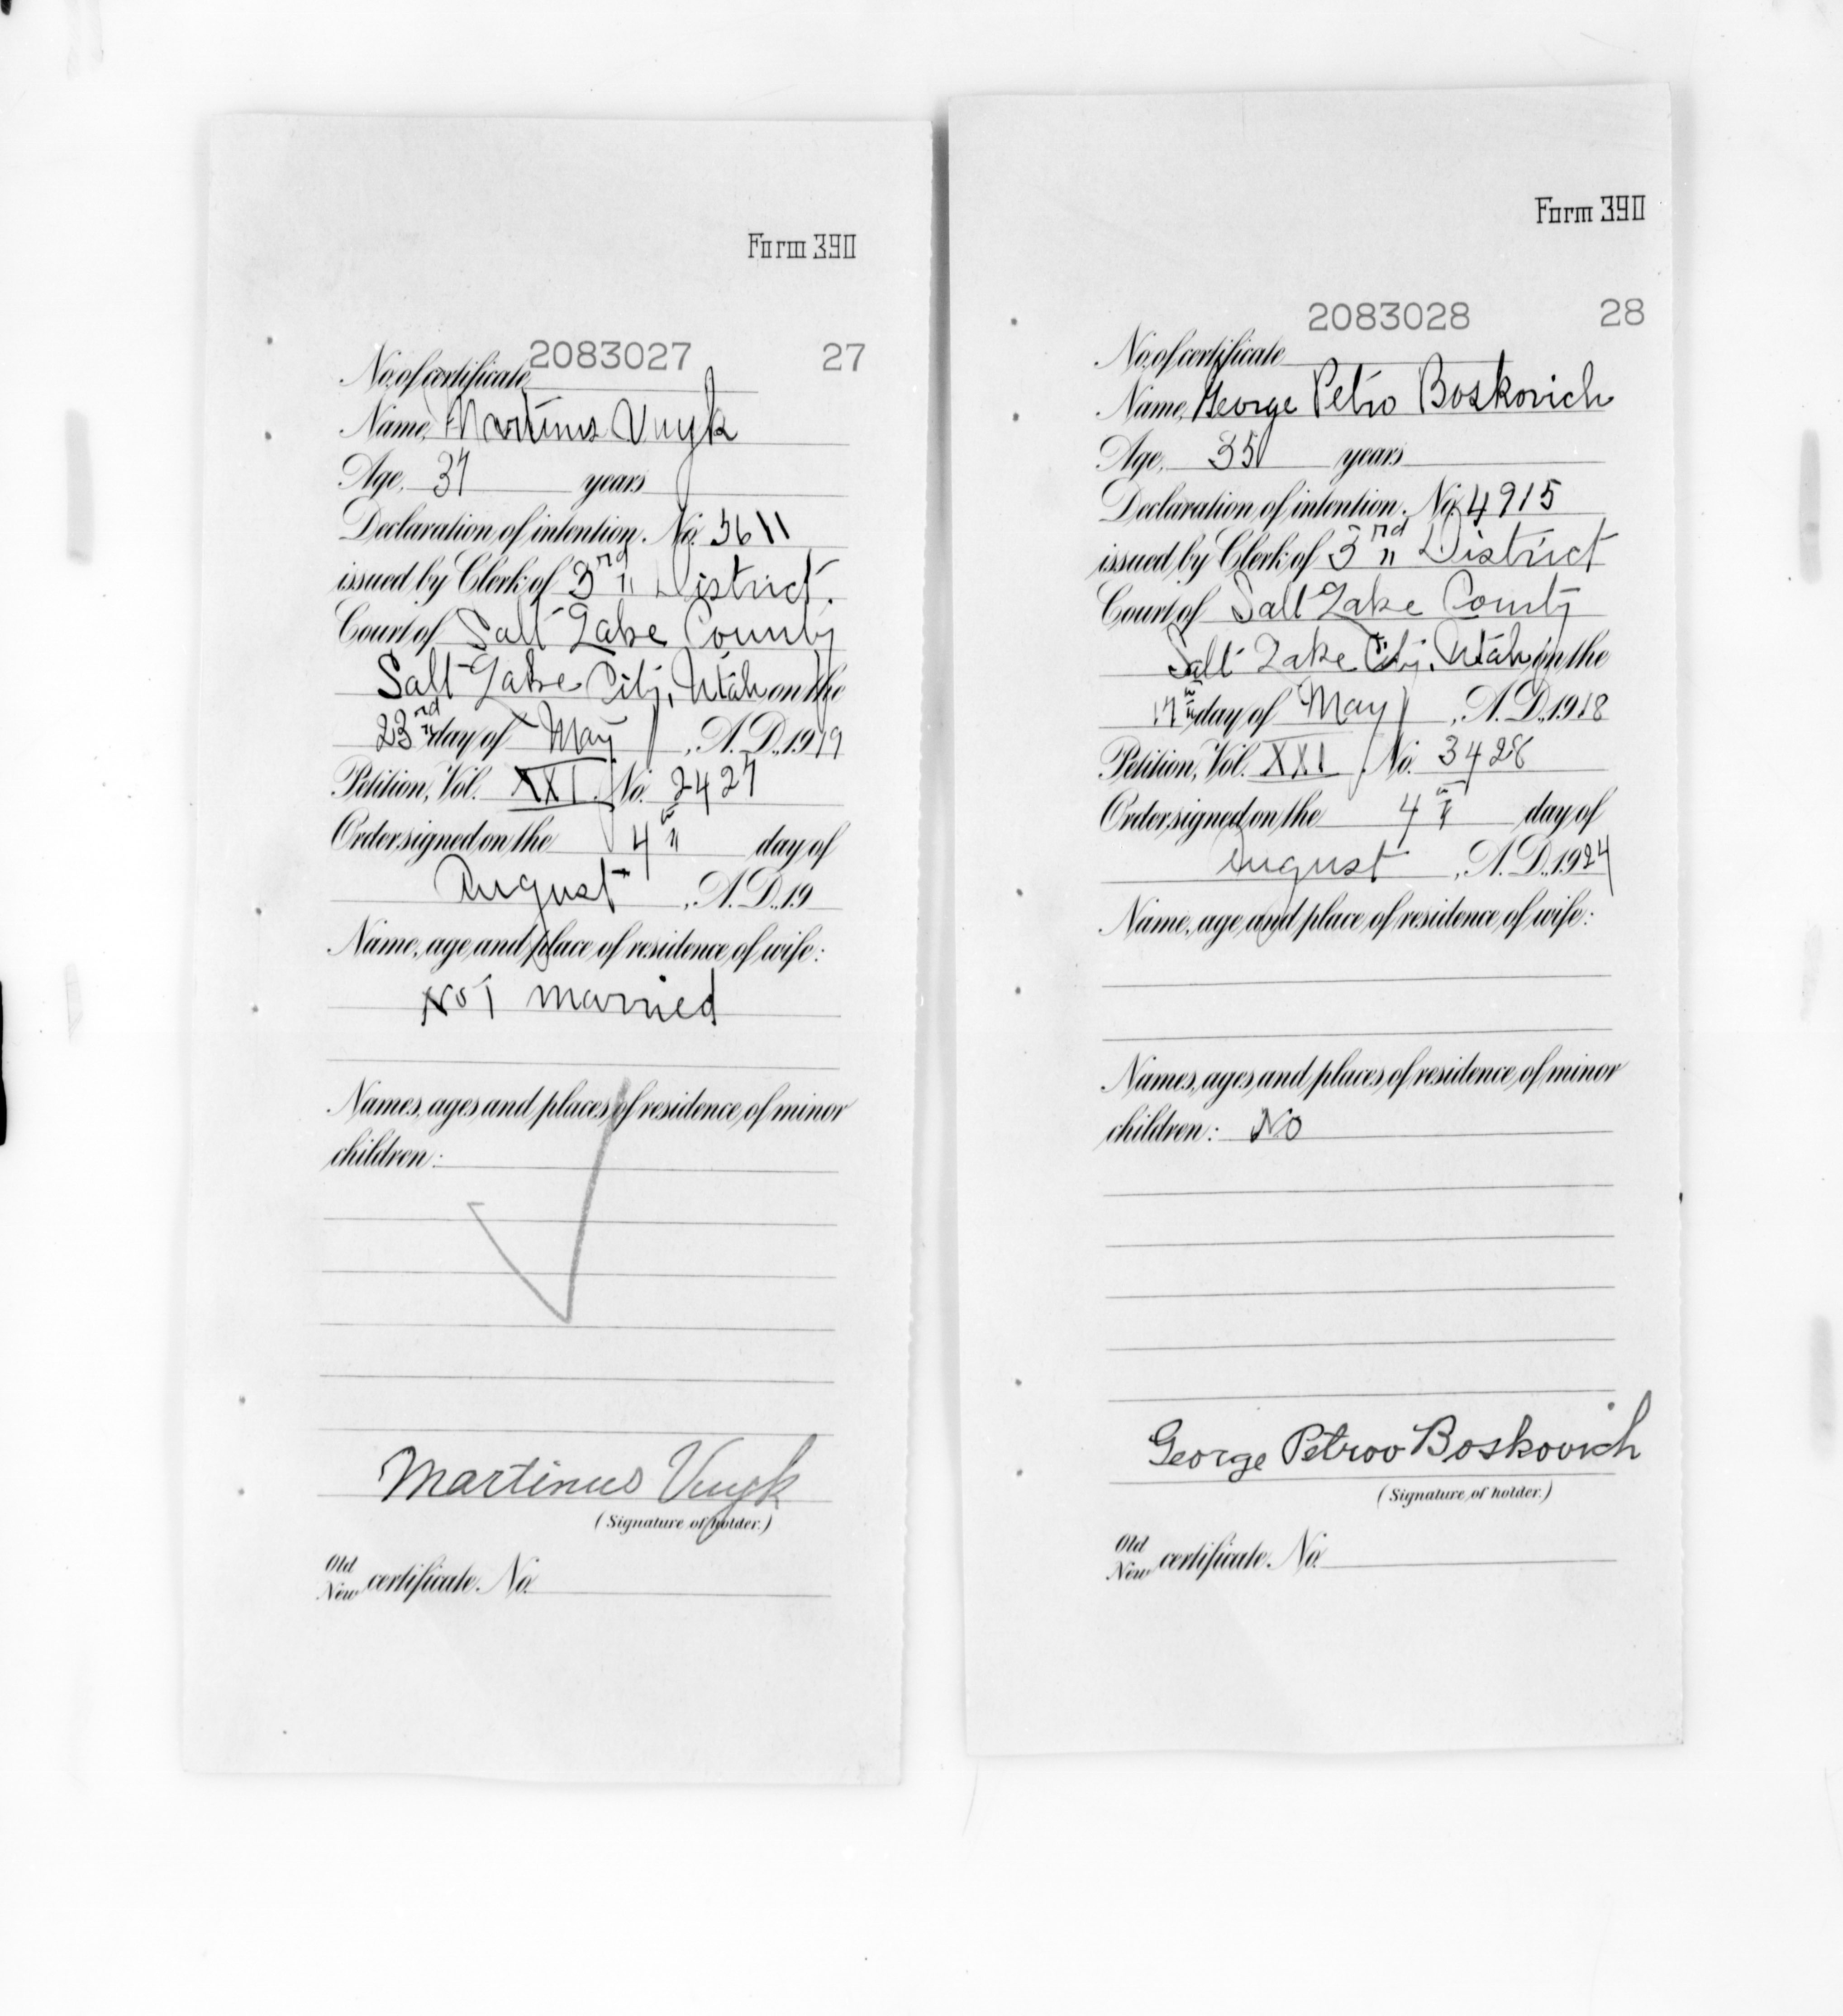 Form 390
2083027 27
No. of certificate
Name, Martinus Vuyk
Age, 37 years
Declaration of intention. No. 5611
issued by Clerk of 3rd District
Court of Salt Lake County
Salt Lake City, Utah on the
23rd day of May, A.D. 1919
Petition, Vol. XXI No. 2427
Order signed on the 4th day of
August, A.D. 19
Name, age and place of residence of wife:
Not married
Names, ages and places of residence of minor
children:
Martinus Vuyk
(Signature of holder.)
Old
New certificate. No.
Form 390
2083028 28
No. of certificate
Name, George Petro Boskovich
Age, 35 years
Declaration of intention. No. 4915
issued by Clerk of 3rd District
Court of Salt Lake County
Salt Lake City, Utah on the
17th day of May, A.D. 1918
Petition, Vol. XXI No. 3428
Order signed on the 4th day of
August, A.D. 1924
Name, age and place of residence of wife:
Names, ages and places of residence of minor
children: No
George Petrov Boskovich
(Signature of holder.)
Old
New certificate. No.